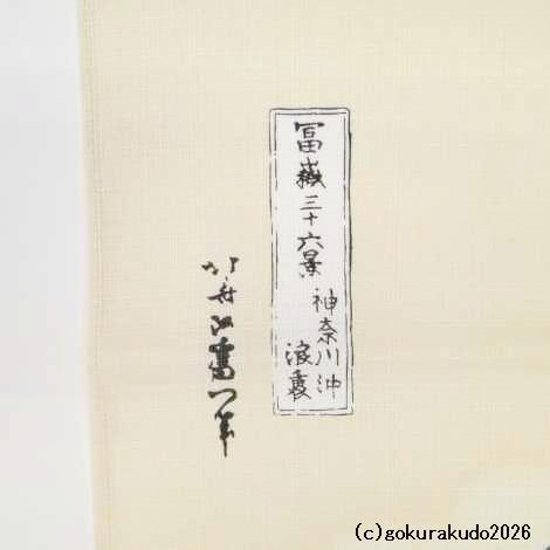 冨嶽三十六景
神奈川沖
浪裏
北斎改為一筆
(c)gokurakudo2026